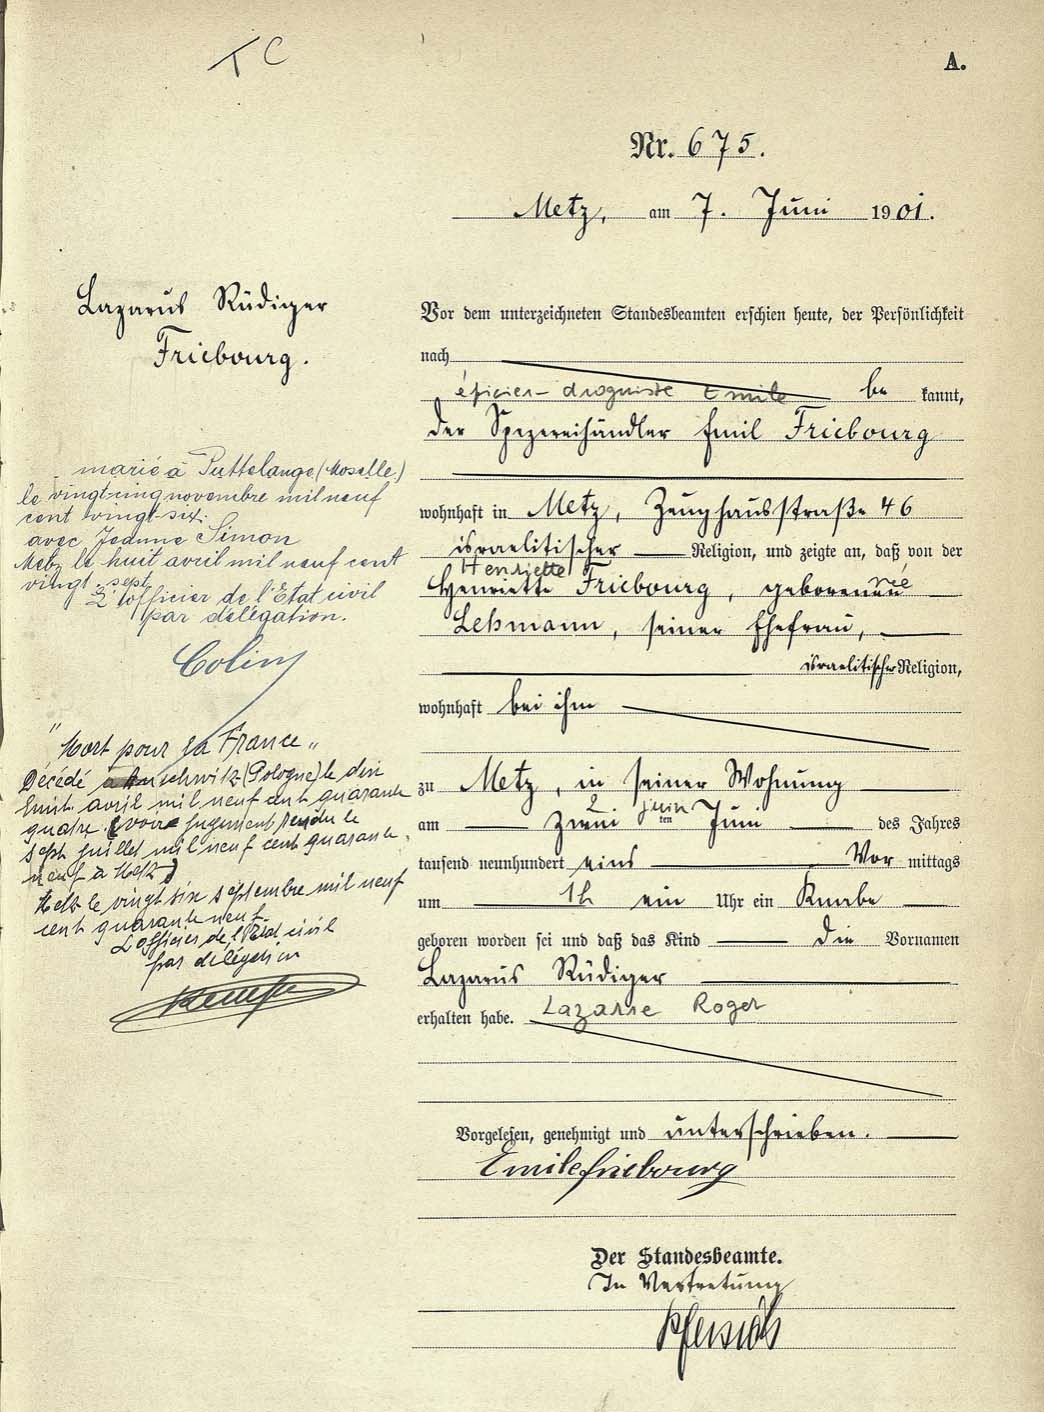 TC
A.
Nr. 675.
Metz, am 7. Juni 1901.
Lazarus Rüdiger
Friebourg.
marié à Puttelange (Moselle)
le vingt-cinq novembre mil neuf
cent vingt-six
avec Jeanne Simon
Metz le huit avril mil neuf cent
vingt-sept
L'officier de l'Etat civil
par délégation.
Colin
"Mort pour la France"
Décédé à Auschwitz (Pologne) le dix
huit avril mil neuf cent quarante
quatre (voir jugement rendu le
sept juillet mil neuf cent quarante
neuf à Metz)
Metz le vingt six septembre mil neuf
cent quarante neuf.
L'officier de l'Etat civil
par délégation
Vor dem unterzeichneten Standesbeamten erschien heute, der Persönlichkeit
nach
épicier-droguiste Emile be kannt,
der Spezereihändler Emil Friebourg
wohnhaft in Metz, Zeughausstraße 46
israelitischer Religion, und zeigte an, daß von der
Henriette
Henriette Friebourg, geborenen née
Lehmann, seiner Ehefrau,
israelitischer Religion,
wohnhaft bei ihm
zu Metz, in seiner Wohnung
2 juin
am zwei ten Juni des Jahres
tausend neunhundert eins Vor mittags
um 1h ein Uhr ein Knabe
geboren worden sei und daß das Kind die Vornamen
Lazarus Rüdiger
erhalten habe. Lazarre Roger
Vorgelesen, genehmigt und unterschrieben.
Emile friebourg
Der Standesbeamte.
In Vertretung